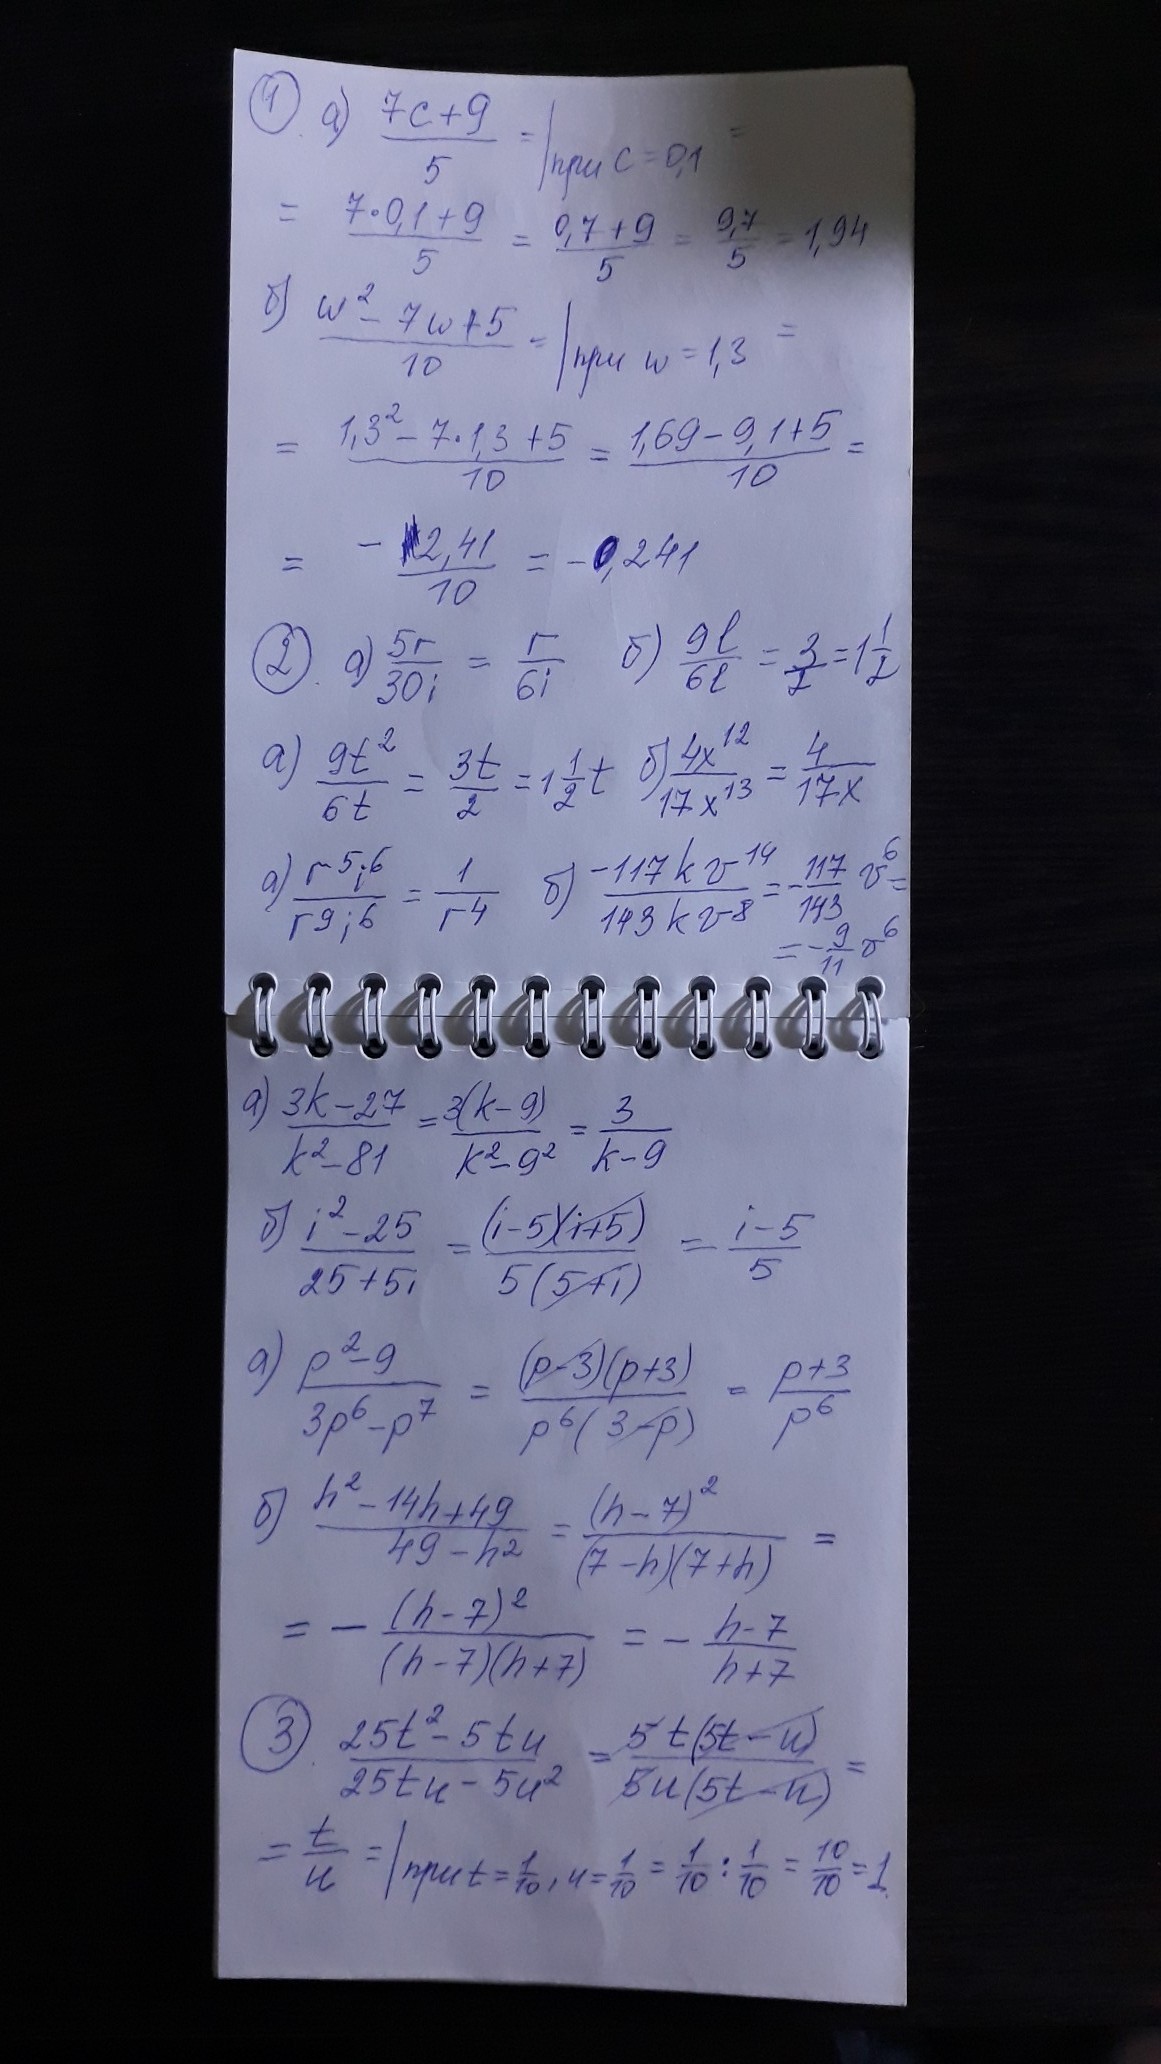 1. а) (7c+9)/5 = | при c=0,1 =
= (7·0,1+9)/5 = (0,7+9)/5 = 9,7/5 = 1,94
б) (w²-7w+5)/10 = | при w=1,3 =
= (1,3²-7·1,3+5)/10 = (1,69-9,1+5)/10 =
= -2,41/10 = -0,241
2. а) 5r/30i = r/6i б) 9l/6l = 3/2 = 1 1/2
а) 9t²/6t = 3t/2 = 1 1/2 t б) 4x¹²/17x¹³ = 4/17x
а) r⁵i⁶/r⁹i⁶ = 1/r⁴ б) -117kv¹⁴/143kv⁸ = -117/143 v⁶ =
= -9/11 v⁶
а) (3k-27)/(k²-81) = 3(k-9)/(k²-9²) = 3/(k-9)
б) (i²-25)/(25+5i) = (i-5)(i+5)/5(5+i) = (i-5)/5
а) (p²-9)/(3p⁶-p⁷) = (p-3)(p+3)/p⁶(3-p) = (p+3)/p⁶
б) (h²-14h+49)/(49-h²) = (h-7)²/(7-h)(7+h) =
= -(h-7)²/(h-7)(h+7) = -(h-7)/(h+7)
3. (25t²-5tu)/(25tu-5u²) = 5t(5t-u)/5u(5t-u) =
= t/u = | при t=1/10, u=1/10 = 1/10 : 1/10 = 10/10 = 1